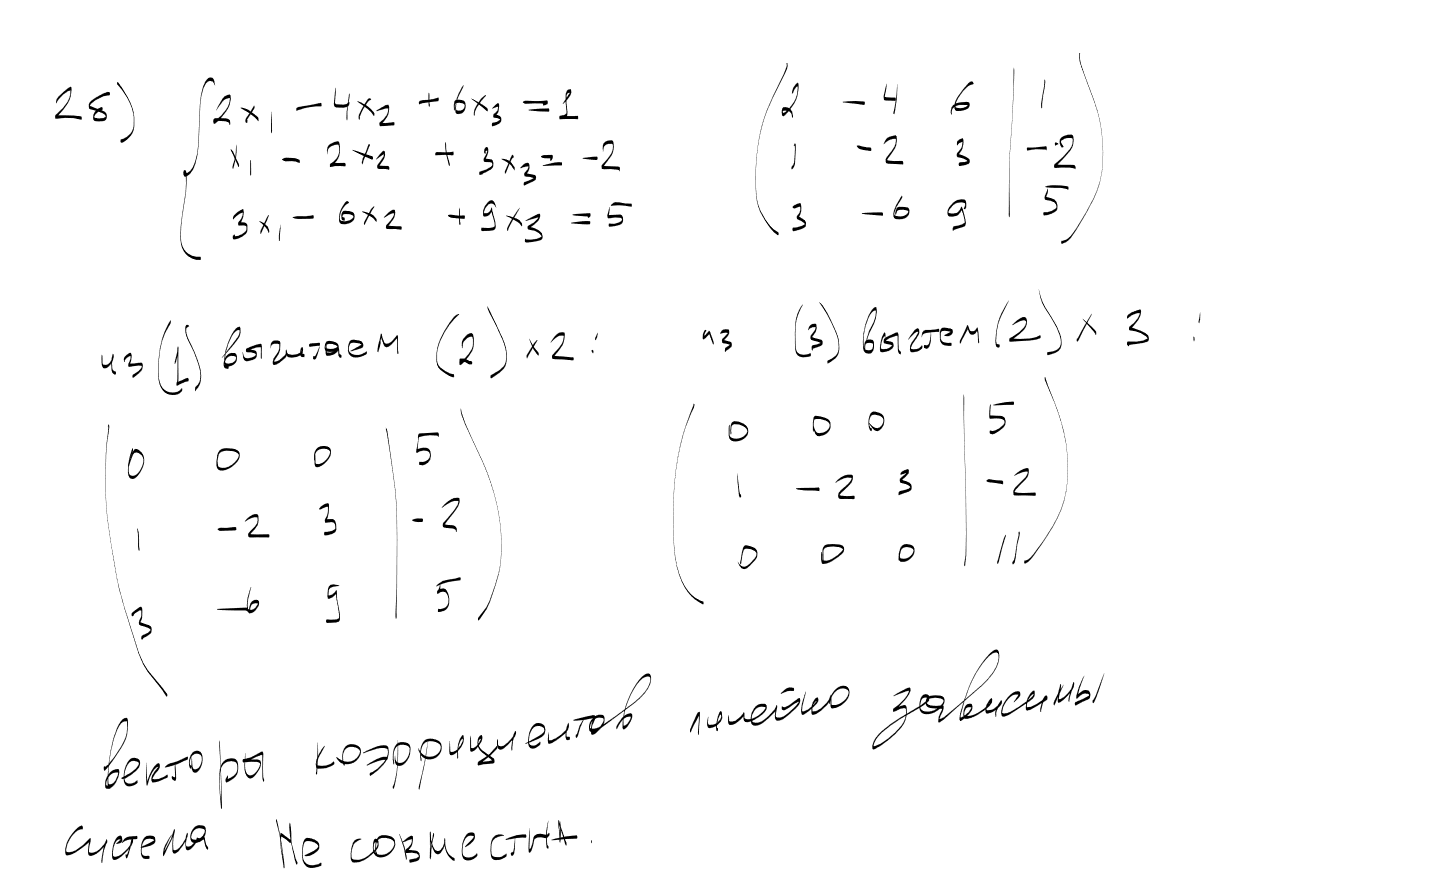 2б) { 2x₁ - 4x₂ + 6x₃ = 1
x₁ - 2x₂ + 3x₃ = -2
3x₁ - 6x₂ + 9x₃ = 5
( 2 -4 6 | 1
1 -2 3 | -2
3 -6 9 | 5 )
из (1) вычитаем (2) × 2 :
( 0 0 0 | 5
1 -2 3 | -2
3 -6 9 | 5 )
из (3) вычтем (2) × 3 :
( 0 0 0 | 5
1 -2 3 | -2
0 0 0 | 11 )
векторы коэррициентов линейно зависимы
система не совместна.